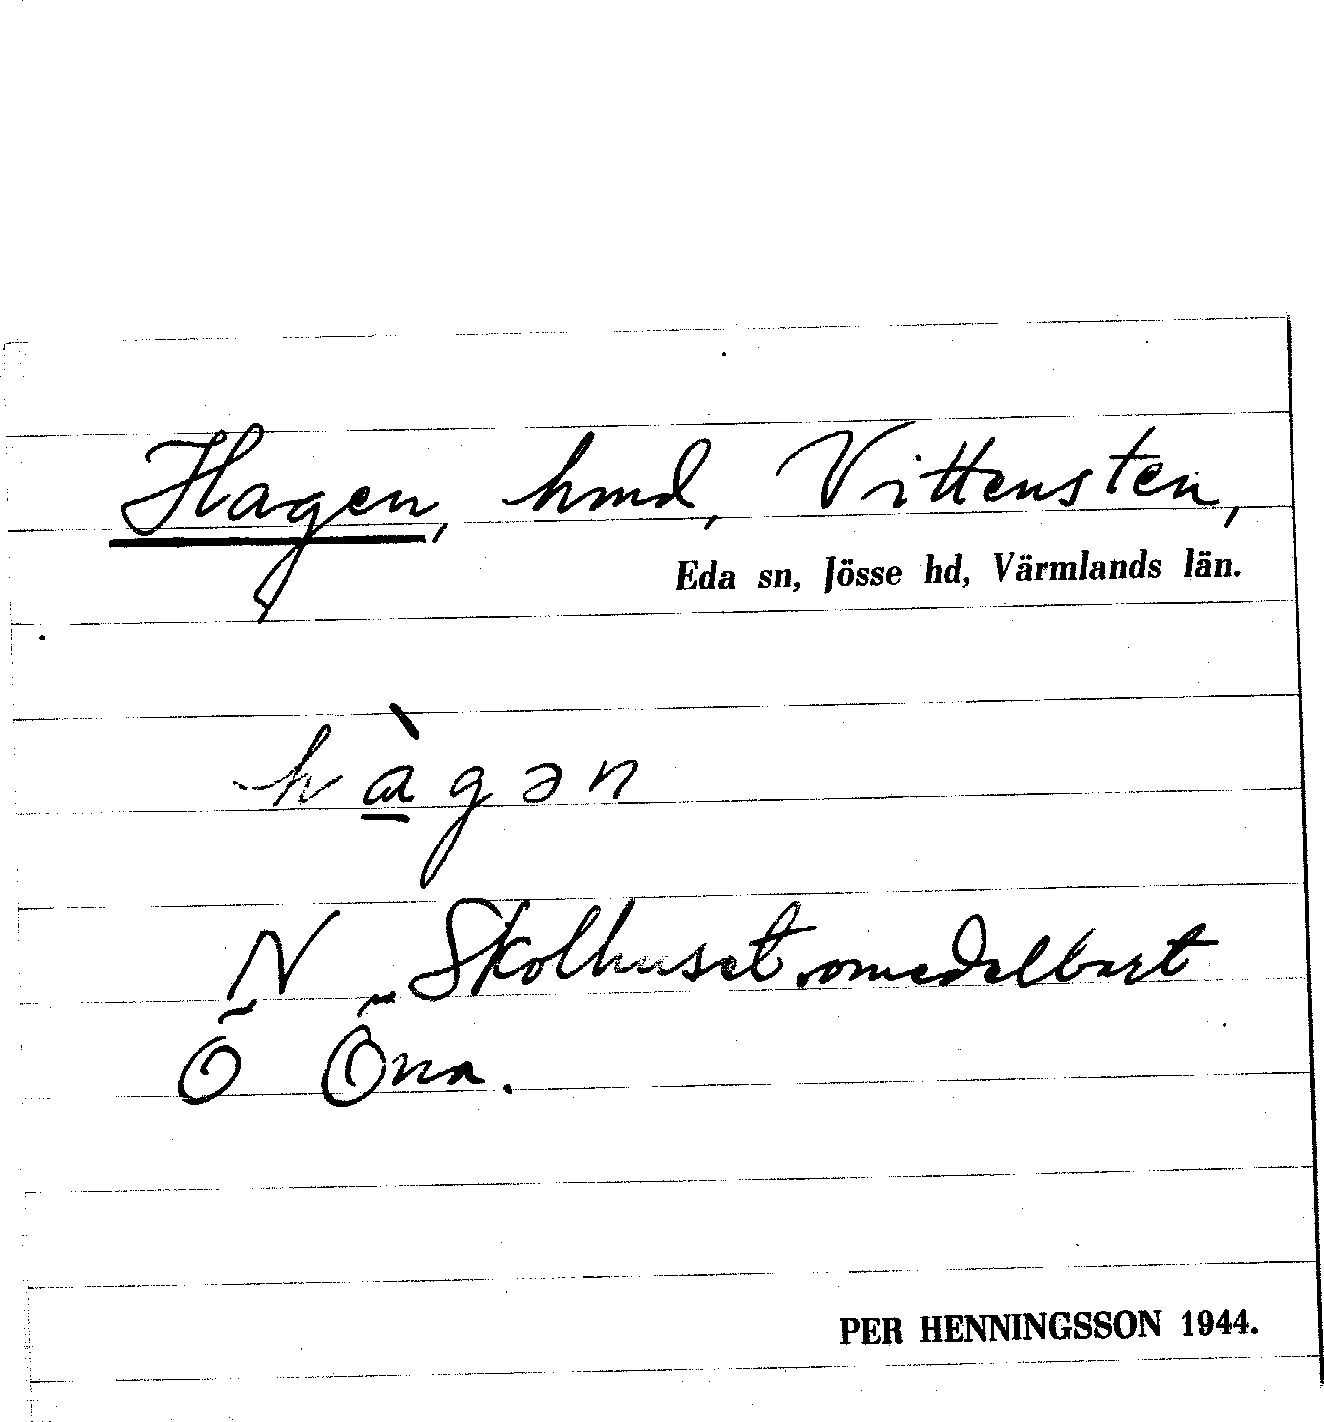 Hagen, hmd, Vittensten,
Eda sn, Jösse hd, Värmlands län.
hàgən
N Skolhuset, omedelbart
Ö Öna.
PER HENNINGSSON 1944.